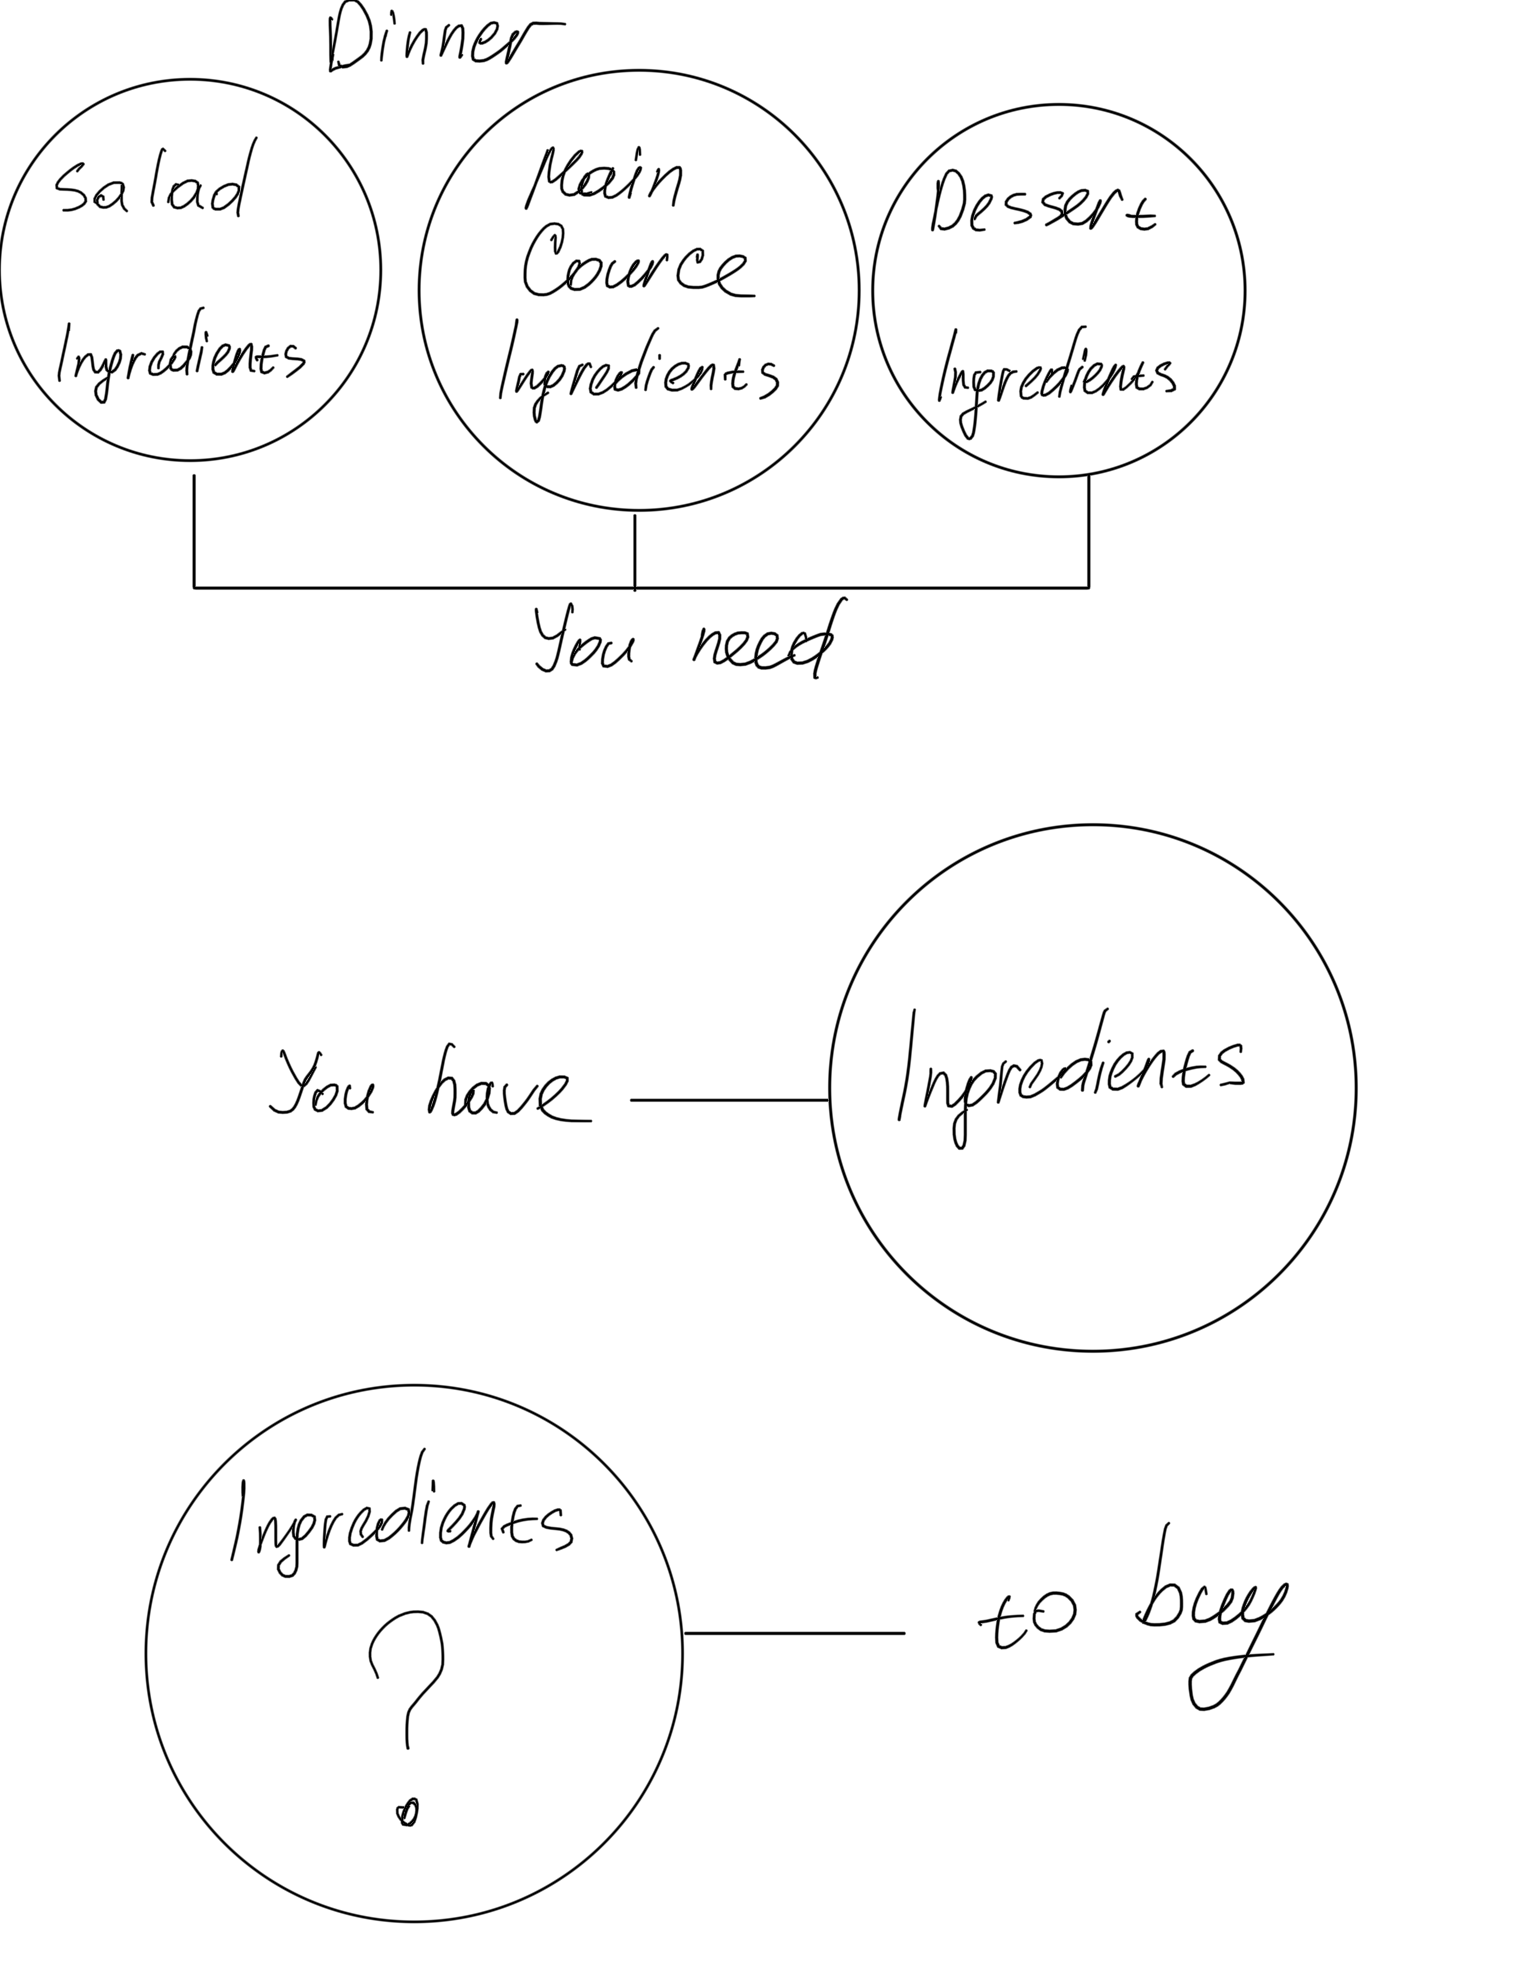 Dinner
Salad
Ingredients
Main
Cource
Ingredients
Dessert
Ingredients
You need
You have
Ingredients
Ingredients
?
to buy